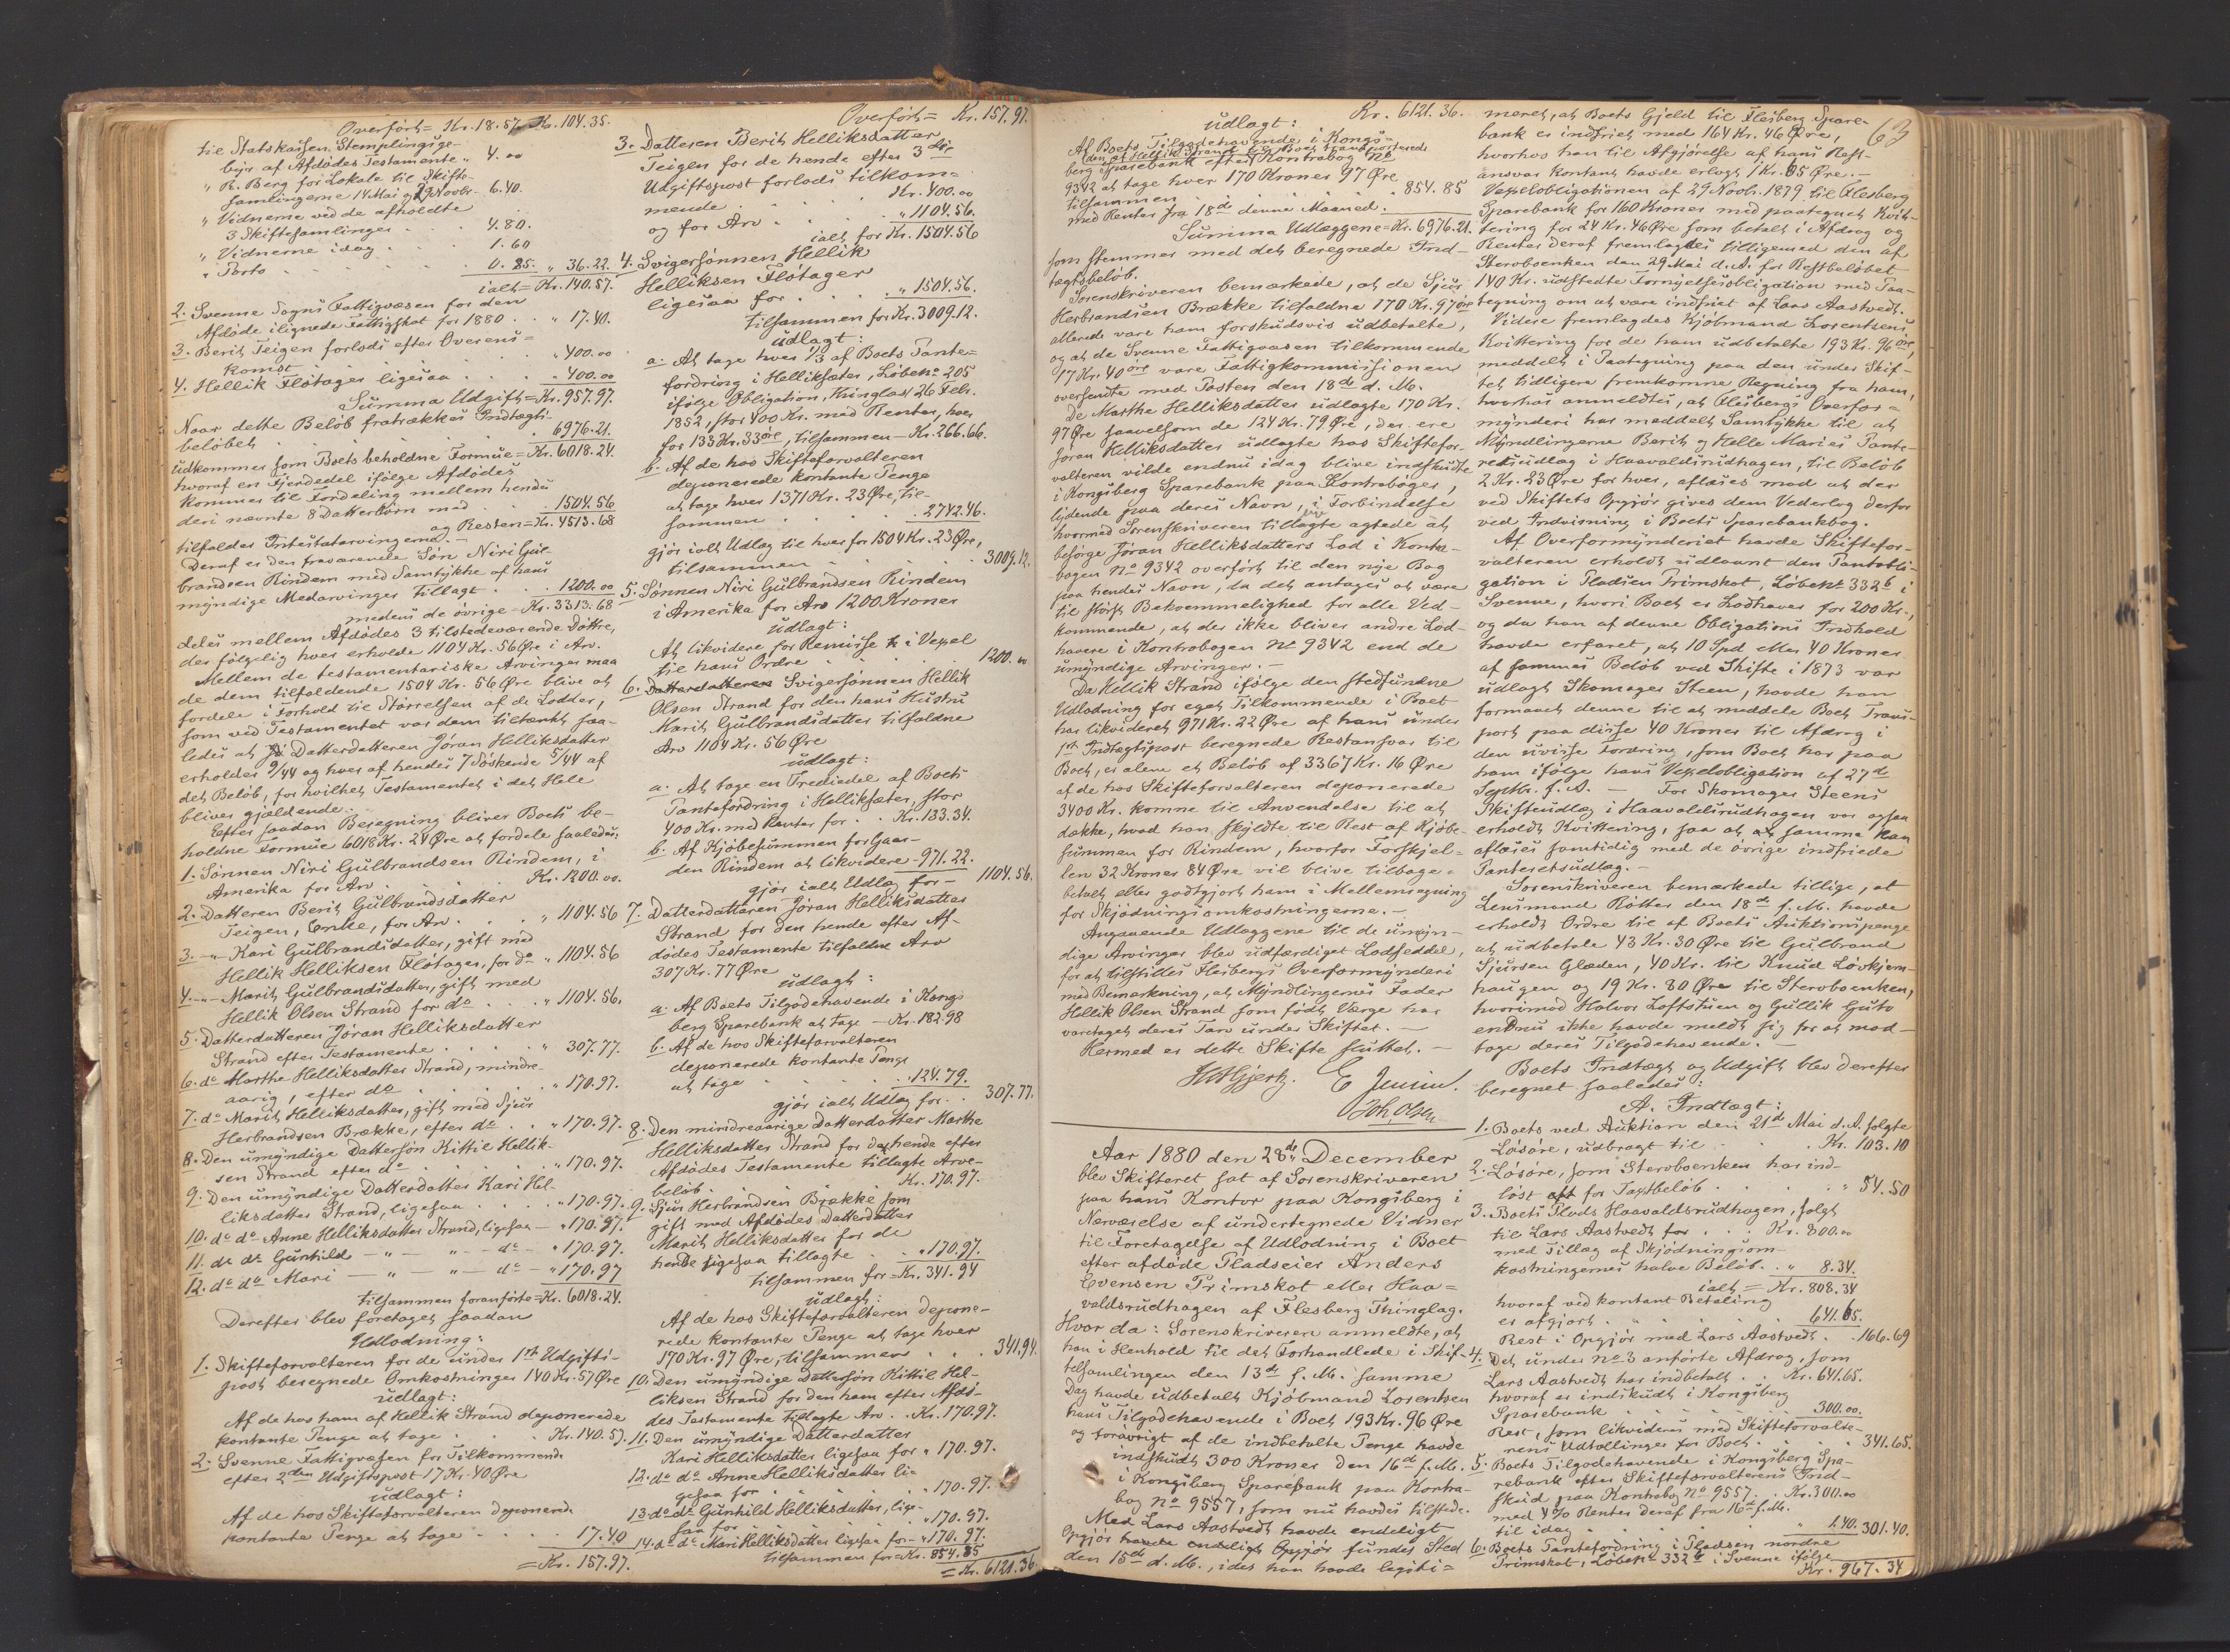 Overført = Kr. 18.57 Kr. 104.35.
til Statskassen Stemplingsge-
byr af Afdødes Testamente " 4.00
" R. Berg for Lokale til Skifte-
samlingerne 14 Mai og 29 Novbr. 6.40.
" Vidnerne ved de afholdte
3 Skiftesamlinger . . 4.80.
" Vidnerne idag . . . 1.60
" Porto . . . . 0.85. " 36.22.
ialt = Kr. 140.57.
2. Svenne Sogns Fattigvæsen for den
Afdøde ilignede Fattigskat for 1880 . . " 17.40.
3. Berit Teigen forlods efter Overens-
komst . . . . " 400.00
4. Hellik Fløtager ligesaa . . . " 400.00
Summa Udgift = Kr. 957.97.
Naar dette Beløb fratrækkes Indtægts-
beløbet . . . . . 6976.21.
udkommer som Boets beholdne Formue = Kr. 6018.24.
hvoraf en Fjerdedel ifølge Afdødes
kommer til Fordeling mellem hendes
deri nævnte 8 Datterbørn med . . 1504.56
og Resten = Kr. 4513.68
tilfalder Intestatarvingerne. —
Deraf er den fraværende Søn Niri Gul-
brandsen Rindem med Samtykke af hans
myndige Medarvinger tillagt . . 1200.00
medens de øvrige = Kr. 3313.68
deles mellem Afdødes 3 tilstedeværende Døttre,
der følgelig hver erholde 1104 Kr. 56 Øre i Arv.
Mellem de testamentariske Arvinger maa
de dem tilfaldende 1504 Kr. 56 Øre blive at
fordele i Forhold til Størrelsen af de Lodder,
som ved Testamentet var dem tiltænkt saa-
ledes at Datterdatteren Jøran Helliksdatter
erholder 9/44 og hver af hendes 7 Søskende 5/44 af
det Beløb, for hvilket Testamentet i det Hele
bliver gjældende.
Efter saadan Beregning bliver Boets be-
holdne Formue 6018 Kr. 24 Øre at fordele saaledes:
1. Sønnen Niri Gulbrandsen Rindem, i
Amerika for Arv . . . Kr. 1200.00.
2. Datteren Berit Gulbrandsdatter
Teigen, Enke, for Arv . . . " 1104.56
3. —"— Kari Gulbrandsdatter, gift med
Hellik Helliksen Fløtager, for do " 1104.56
4. —"— Marit Gulbrandsdatter, gift med
Hellik Olsen Strand for do . . " 1104.56.
5. Datterdatteren Jøran Helliksdatter
Strand efter Testamente . . . " 307.77.
6. do Marthe Helliksdatter Strand, mindre-
aarig, efter do . . . . " 170.97.
7. do Marit Helliksdatter, gift med Sjur
Herbrandsen Brække, efter do . . " 170.97.
8. Den umyndige Dattersøn Kittil Hellik-
sen Strand efter do . . . . " 170.97.
9. Den umyndige Datterdatter Kari Hel-
liksdatter Strand, ligesaa . . . " 170.97.
10. do do Anne Helliksdatter Strand, ligesaa — " 170.97.
11. do do Gunhild — " — " — do — " 170.97.
12. do do Mari — " — " — do — " 170.97
tilsammen foranførte = Kr. 6018.24.
Derefter blev foretaget saadan
Udlodning:
1. Skifteforvalteren for de under 1ste Udgifts-
post beregnede Omkostninger 140 Kr. 57 Øre
udlagt:
Af de hos ham af Hellik Strand deponerede
kontante Penge at tage . . . Kr. 140.57.
2. Svenne Fattigvæsen for Tilkommende
efter 2den Udgiftspost 17 Kr. 40 Øre
udlagt:
Af de hos Skifteforvalteren deponerede
kontante Penge at tage . . . . 17.40
= Kr. 157.97.
Overført = Kr. 157.97.
3. Datteren Berit Helliksdatter
Teigen for de hende efter 3die
Udgiftspost forlods tilkom-
mende . . . . Kr. 400.00
og for Arv . . . . " 1104.56.
ialt for Kr. 1504.56
4. Svigersønnen Hellik
Helliksen Fløtager
ligesaa for . . . . " 1504.56.
tilsammen for Kr. 3009.12.
udlagt:
a. At tage hver 1/3 af Boets Pante-
fordring i Helliksæter, Løbeno 205
ifølge Obligation, thinglæst 26 Febr.
1852, stor 400 Kr. med Renter, hver
for 133 Kr. 33 øre, tilsammen — Kr. 266.66.
b. Af de hos Skifteforvalteren
deponerede kontante Penge
at tage hver 1371 Kr. 23 Øre, til-
sammen . . . . 2742.46.
gjør ialt Udlæg til hver for 1504 Kr. 23 Øre,
tilsammen . . . . . 3009.12.
5. Sønnen Niri Gulbrandsen Rindem
i Amerika for Arv 1200 Kroner
udlagt:
At likvidere for Remisse i Vexel
til hans Ordre . . . . 1200.00
6. Datterdatteren Svigersønnen Hellik
Olsen Strand for den hans Hustru
Marit Gulbrandsdatter tilfaldne
Arv 1104 Kr. 56 Øre
udlagt:
a. At tage en Trediedel af Boets
Pantefordring i Helliksæter, stor
400 Kr. med Renter for . . Kr. 133.34.
b. Af Kjøbesummen for Gaar-
den Rindem at likvidere — 971.22.
gjør ialt Udlæg for — 1104.56.
7. Datterdatteren Jøran Helliksdatter
Strand for den hende efter Af-
dødes Testamente tilfaldne Arv
307 Kr. 77 Øre
udlagt:
a. Af Boets Tilgodehavende i Kongs-
berg Sparebank at tage — Kr. 182.98
b. Af de hos Skifteforvalteren
deponerede kontante Penge
at tage . . . . " 124.79.
gjør ialt Udlæg for . . 307.77.
8. Den mindreaarige Datterdatter Marthe
Helliksdatter Strand for det hende efter
Afdødes Testamente tillagte Arve-
beløb . . . . . Kr. 170.97.
9. Sjur Herbrandsen Brække som
gift med Afdødes Datterdatter
Marit Helliksdatter for de
hende ligesaa tillagte . . . " 170.97.
tilsammen for = Kr. 341.94
udlagt:
Af de hos Skifteforvalteren depone-
rede kontante Penge at tage hver
170 Kr. 97 Øre, tilsammen . . . 341.94.
10. Den umyndige Dattersøn Kittil Hel-
liksen Strand for den ham efter Afdø-
des Testamente tillagte Arv . . Kr. 170.97.
11. Den umyndige Datterdatter
Kari Helliksdatter ligesaa for " 170.97.
12. do do Anne Helliksdatter li-
gesaa for . . . . . " 170.97.
13. do do Gunhild Helliksdatter, lige-
saa for . . . . . " 170.97.
14. do do Mari Helliksdatter ligesaa for — " 170.97.
tilsammen for = Kr. 854.85
= Kr. 6121.36.
63
Kr. 6121.36.
udlagt:
Af Boets Tilgodehavende i Kongs-
den af Hellik Strand til Boet transporterede
berg Sparebank efter Kontrabog No
9342 at tage hver 170 Kroner 97 Øre
tilsammen . . . . . " 854.85
med Renter fra 18de denne Maaned.
Summa Udlæggene = Kr. 6976.21.
som stemmer med det beregnede Ind-
tægtsbeløb.
Sorenskriveren bemærkede, at de Sjur
Herbrandsen Brække tilfaldne 170 Kr. 97 øre
allerede vare ham forskudsvis udbetalte,
og at de Svenne Fattigvæsen tilkommende
17 Kr. 40 øre vare Fattigkommissionen
oversendte med Posten den 18de d. M.
De Marthe Helliksdatter udlagte 170 Kr.
97 Øre saavelsom de 124 Kr. 79 Øre, der ere
Jøran Helliksdatter udlagte hos Skiftefor-
valteren vilde endnu idag blive indskudte
i Kongsberg Sparebank paa Kontrabøger,
lydende paa deres Navn, i Forbindelse
hvormed Sorenskriveren tillagte agtede at
besørge Jøran Helliksdatters Lod i Kontra-
bogen No 9342 overført til den nye Bog
paa hendes Navn, da det antages at være
til størst Bekvemmelighed for alle Ved-
kommende, at der ikke bliver andre Lod-
havere i Kontrabogen No 9342 end de
umyndige Arvinger. —
Da Hellik Strand ifølge den stedfundne
Udlodning for eget Tilkommende i Boet
har likvideret 971 Kr. 22 Øre af hans under
1ste Indtægtspost beregnede Restansvar til
Boet, er alene et Beløb af 3367 Kr. 16 Øre
af de hos Skifteforvalteren deponerede
3400 Kr. komne til Anvendelse til at
dække, hvad han skyldte til Rest af Kjøbe-
summen for Rindem, hvorfor Forskjel-
len 32 Kroner 84 Øre vil blive tilbage-
betalt eller godtgjort ham i Mellemregning
for Skjødningsomkostningerne. —
Angaaende Udlæggene til de umyn-
dige Arvinger blev udfærdiget Lodseddel,
for at tilstilles Flesbergs Overformynderi
med Bemærkning, at Myndlingernes Fader
Hellik Olsen Strand som født Værge har
varetaget deres Tarv under Skiftet. —
Hermed er dette Skifte sluttet. —
Joh. Olsen
Aar 1880 den 28de December
blev Skifteret sat af Sorenskriveren
paa hans Kontor paa Kongsberg i
Nærværelse af undertegnede Vidner
til Foretagelse af Udlodning i Boet
efter afdøde Pladseier Anders
Evensen Primskot eller Haa-
valdsrudhagen af Flesberg Thinglag.
Hvor da: Sorenskriveren anmeldte, at
han i Henhold til det Forhandlede i Skif-
tesamlingen den 13de f. M. samme
Dag havde udbetalt Kjøbmand Lorentsen
hans Tilgodehavende i Boet 193 Kr. 96 Øre
og forøvrigt af de indbetalte Penge havde
indskudt 300 Kroner den 16de f. M.
i Kongsberg Sparebank paa Kontra-
bog No 9557, som nu havdes tilstede.
Med Lars Aastvedt havde endeligt
Opgjør havde endeligt Opgjør fundet Sted
den 15de d. M., idet han havde legiti-
meret, at Boets Gjeld til Flesberg Spare-
bank er indfriet med 164 Kr. 46 Øre,
hvorhos han til Afgjørelse af hans Rest-
ansvar kontant havde erlagt 1 Kr. 85 Øre. —
Vexelobligationen af 29 Novb. 1879 til Flesberg
Sparebank for 160 Kroner med paategnet Kvit-
tering for 24 Kr. 46 Øre som betalt i Afdrag og
Renter deraf fremlagdes tilligemed den af
Stervboenken den 29 Mai d. A. for Restbeløbet
140 Kr. udstedte Fornyelsesobligation med Paa-
tegning om at være indfriet af Lars Aastvedt.
Videre fremlagdes Kjøbmand Lorentsens
Kvittering for de ham udbetalte 193 Kr. 96 øre,
meddelt i Paategning paa den under Skif-
tet tidligere fremkomne Regning fra ham,
hvorhos anmeldtes, at Flesbergs Overfor-
mynderi har meddelt Samtykke til at
Myndlingerne Berit og Helle Maries Pante-
retsudlæg i Haavaldsrudhagen, til Beløb
2 Kr. 23 Øre for hver, aflæses mod at der
ved Skiftets Opgjør gives dem Vederlag derfor
ved Anvisning i Boets Sparebankbog.
Af Overformynderiet havde Skiftefor-
valteren erholdt udlaant den Panteobli-
gation i Pladsen Primskot, Løbeno 332b i
Svenne, hvori Boet er Lodhaver for 200 Kr.,
og da han af denne Obligations Indhold
havde erfaret, at 10 Spd eller 40 Kroner
af sammes Beløb ved Skifte i 1873 var
udlagt Skomager Steen, havde han
formaaet denne til at meddele Boet Trans-
port paa disse 40 Kroner til Afdrag i
den uvisse Fordring, som Boet har paa
ham ifølge hans Vexelobligation af 27de
Septbr. f. A. — For Skomager Steens
Skifteudlæg i Haavaldsrudhagen var ogsaa
erholdt Kvittering, saa at samme kan
aflæses samtidig med de øvrige indfriede
Panteretsudlæg. —
Sorenskriveren bemærkede tillige, at
Lensmand Røtter den 18de f. M. havde
erholdt Ordre til af Boets Auktionspenge
at udbetale 43 Kr. 30 Øre til Gulbrand
Sjursen Glæden, 40 Kr. til Knud Løvkjern-
haugen og 19 Kr. 80 Øre til Stervboenken,
hvorimod Halvor Loftstuen og Gullik Gutv
endnu ikke havde meldt sig for at mod-
tage deres Tilgodehavende. —
Boets Indtægt og Udgift blev derefter
beregnet saaledes:
A. Indtægt:
1. Boets ved Auktion den 21de Mai d. A. solgte
Løsøre, udbragt til . . . Kr. 103.10
2. Løsøre, som Stervboenken har ind-
løst for Taxtbeløb . . . . " 54.50
3. Boets Plads Haavaldsrudhagen, solgt
til Lars Aastvedt for . . . Kr. 800.00
med Tillæg af Skjødningsom-
kostningernes halve Beløb . . " 8.34.
ialt = Kr. 808.34
hvoraf ved kontant Betaling
er afgjort . . . . . 641.65.
Rest i Opgjør med Lars Aastvedt . . 166.69
4. Det under No 3 anførte Afdrag, som
Lars Aastvedt har indbetalt . . Kr. 641.65.
hvoraf er indskudt i Kongsberg
Sparebank . . . . . 300.00.
Rest, som likvideres med Skifteforvalte-
rens Udtællinger for Boet . . . " 341.65.
5. Boets Tilgodehavende i Kongsberg Spa-
rebank efter Skifteforvalterens Ind-
skud paa Kontrabog No 9557 . . Kr. 300.00
med 4% Renter deraf fra 16de f. M.
til idag . . . . . " 1.40. 301.40.
6. Boets Pantefordring i Pladsen nordre
Primskot, Løbeno 332b i Svenne ifølge
Kr. 967.34